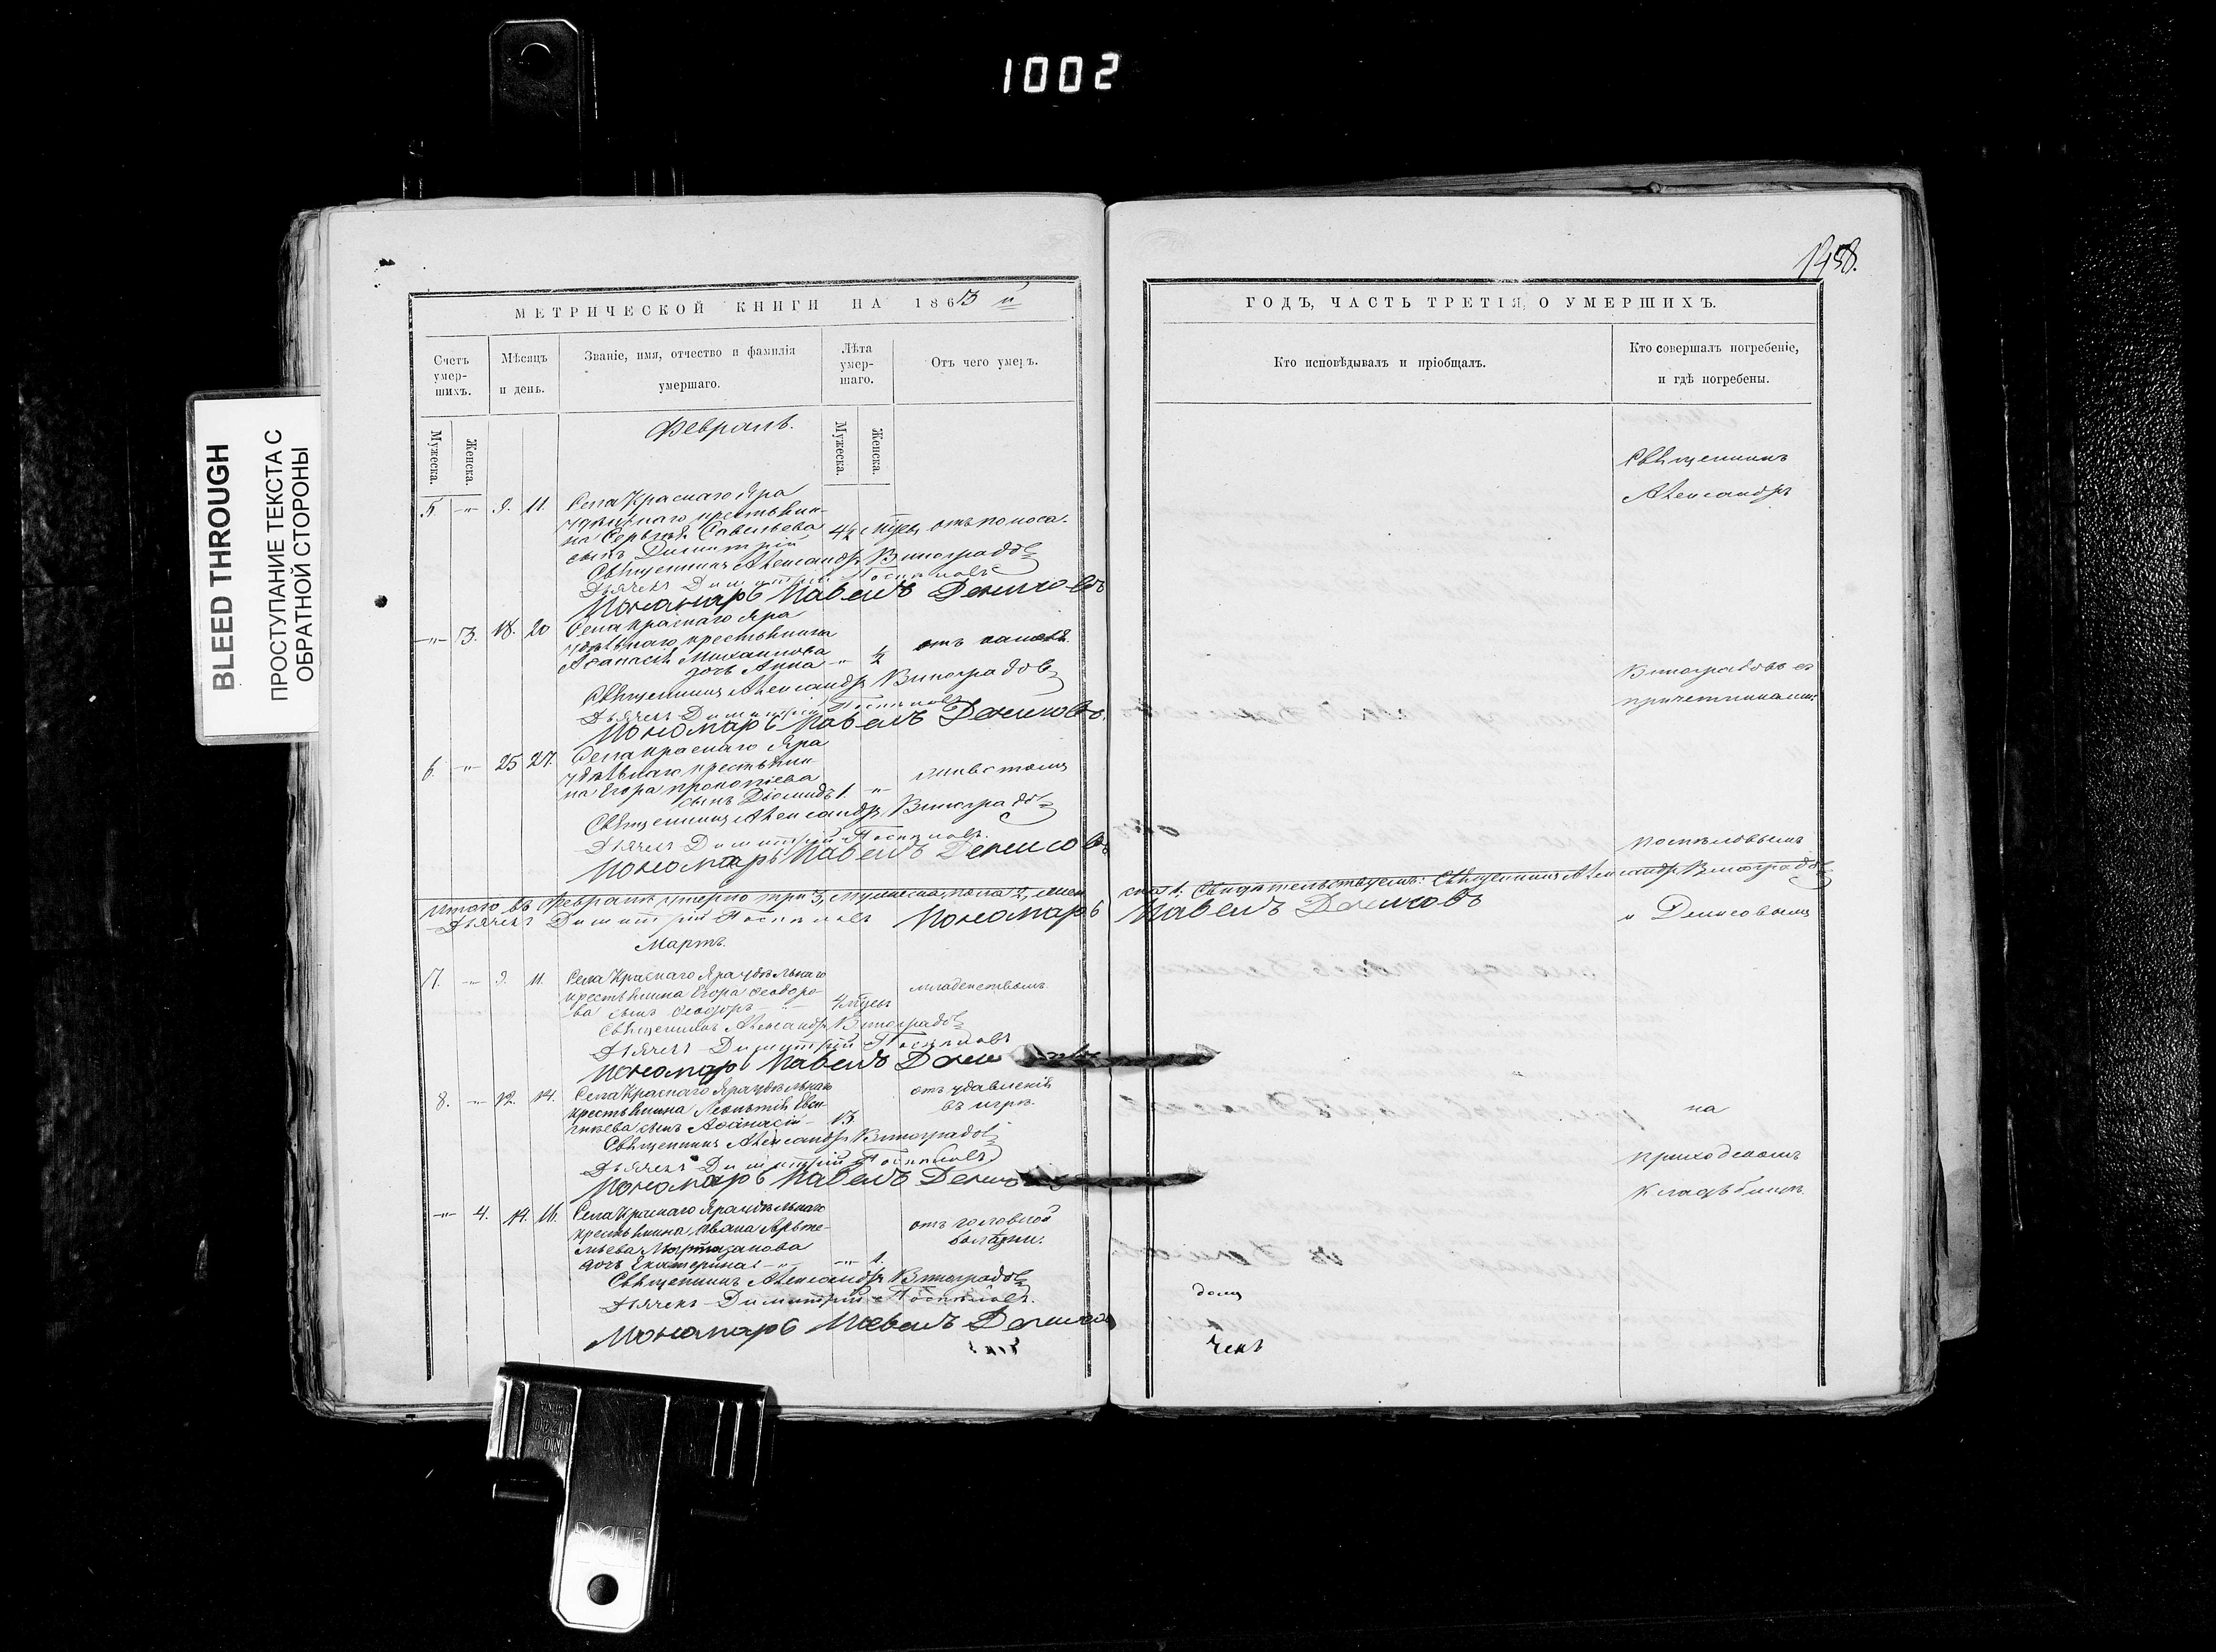 1002
BLEED THROUGH
ПРОСТУПАНИЕ ТЕКСТА С
ОБРАТНОЙ СТОРОНЫ
МЕТРИЧЕСКОЙ КНИГИ НА 1863 й
Счетъ умер-шихъ.
Мѣсяцъ и день.
Званіе, имя, отчество и фамилія умершаго.
Лѣта умер-шаго.
Отъ чего умеръ.
Мужеска.
Женска.
Мужеска.
Женска.
Февраль.
5. -"- 9. 11. Села Краснаго Яра
удѣльнаго крестьяни-
на Сергѣя Савельева 4½ мѣсяц. отъ поноса.
сынъ Димитрій
Священникъ Александръ Виноградовъ
Дьячекъ Димитрій Поспѣловъ
Пономарь Павелъ Денисовъ
-"- 3. 18. 20 Села Краснаго Яра
удѣльнаго крестьянина
Аѳанасія Михаилова
дочь Анна -"- ½ отъ кашля.
Священникъ Александръ Виноградовъ
Дьячекъ Димитрій Поспѣловъ
Пономарь Павелъ Денисовъ.
6. -"- 25 27. Села Краснаго Яра
удѣльнаго крестьяни-
на Егора Прокопіева
сынъ Діомидъ 1 -"-
Священникъ Александръ Виноградовъ
Дьячекъ Димитрій Поспѣловъ.
Пономарь Павелъ Денисовъ
Итого въ Февралѣ умерло три 3, мужеска пола 2, жен
Дьячекъ Димитрій Поспѣловъ Пономарь
Мартъ.
7. -"- 9. 11. Села Краснаго Яра удѣльнаго
крестьянина Егора Ѳеодоро-
ва сынъ Ѳеодоръ младенствомъ
Священникъ Александръ Виноградовъ
Дьячекъ Димитрій Поспѣловъ
Пономарь Павелъ Дени
8. -"- 12. 14. Села Краснаго Яра удѣльнаго отъ удавленія
крестьянина въ игрѣ.
сынъ Аѳанасій 13
Священникъ Александръ Виноградовъ
Дьячекъ Димитрій Поспѣловъ
Пономарь Павелъ Денисо
-"- 4. 14. 16. Села Краснаго Яра удѣльнаго
крестьянина Ивана Артье- отъ головной
мьева болѣзни.
дочь Екатерина -"- 1.
Священникъ Александръ Виноградовъ
Дьячекъ Димитрій Поспѣловъ.
Пономарь Павелъ Денисов
1458.
ГОДЪ, ЧАСТЬ ТРЕТІЯ, О УМЕРШИХЪ.
Кто исповѣдывалъ и пріобщалъ.
Кто совершалъ погребеніе,
и гдѣ погребены.
Священникъ
Александръ
Виноградовъ съ
причетниками:
Поспѣловымъ
ска 1. Свидѣтельствуемъ: Священникъ Александръ Виноградовъ
Павелъ Денисовъ
и Денисовымъ
на
приходскомъ
кладбищѣ.